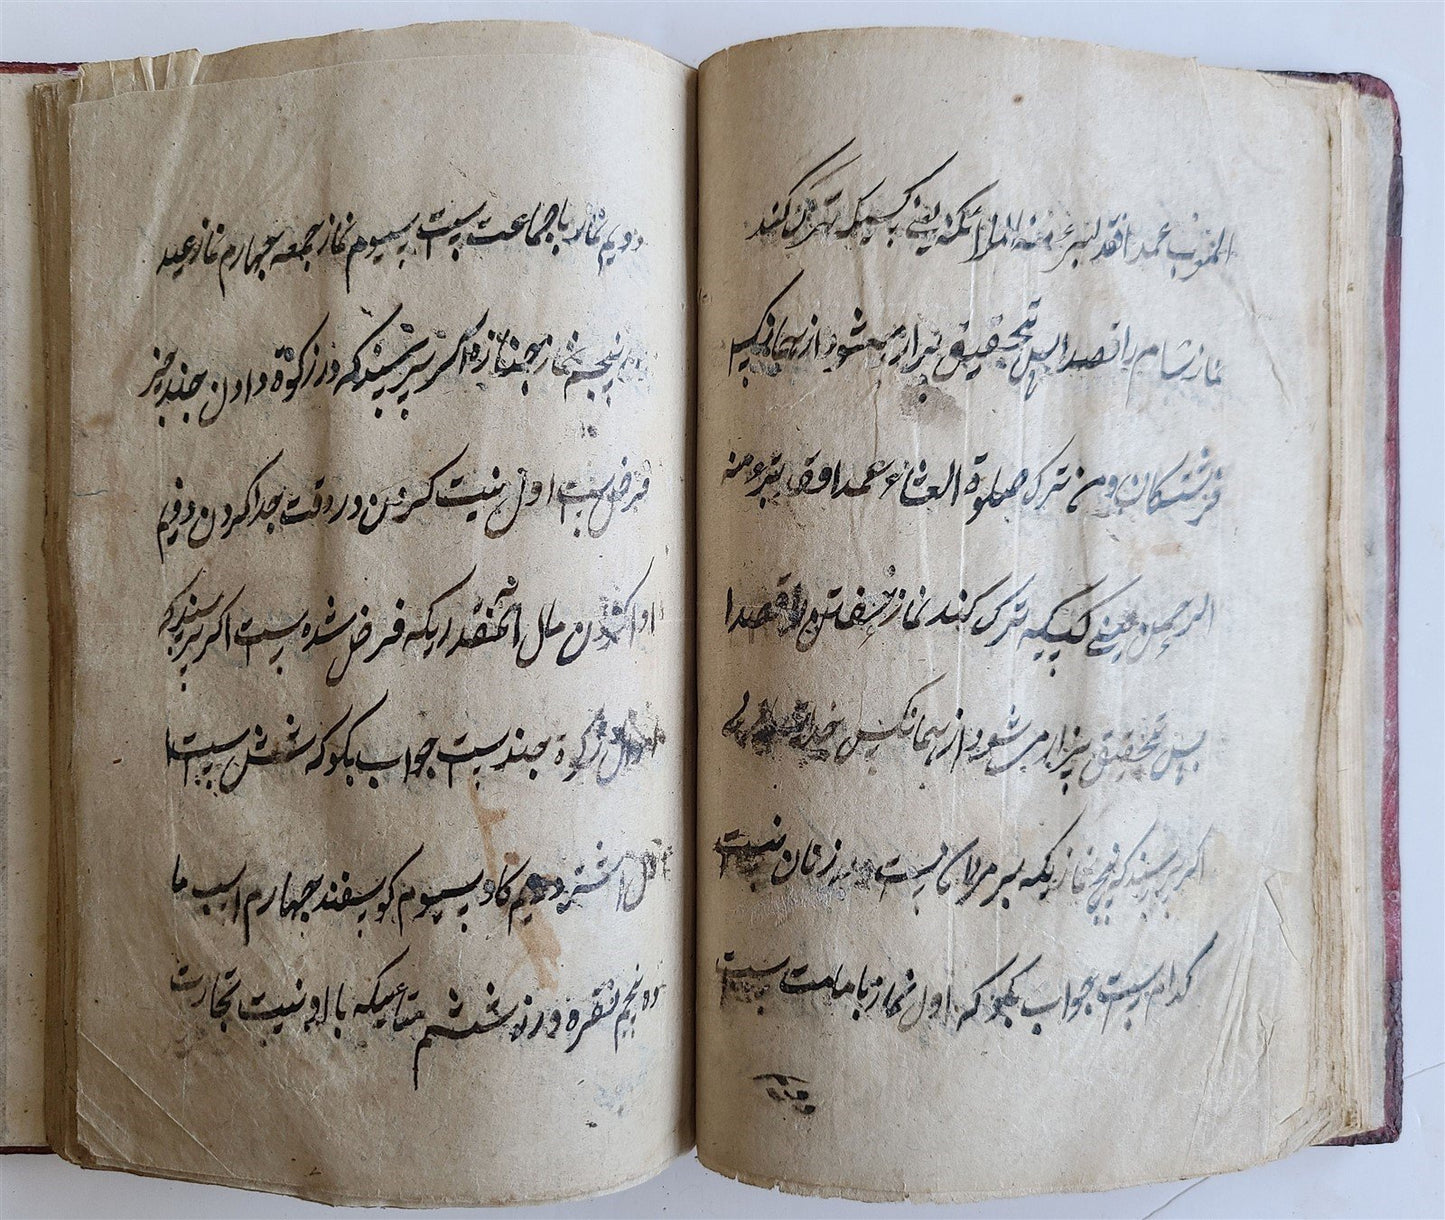 المغرب عمدا فقد تبرء منه الملائکه یعنی کسیکه ترک کند
نماز شام را قصدا پس تحقیق بیزار میشود از
فرشتکان ومن ترک صلوة العشاء عمدا فقد تبرء منه
الرحمن یعنی کسیکه ترک کند نماز خفتن را قصدا
پس تحقیق بیزار می شود از
اکر پرسند که پنج نماز یکه بر مردان نیست بر زنان نیست
کدام است جواب بکو که اول نماز با مامت است
دویم
دویم نماز با جماعت است سیوم نماز جمعه چهارم نماز عید
پنجم نماز جنازه اکر پرسند که در زکوة دادن چند چیز
فرض است اول نیت کردن در وقت جدا کردن دویم
ادا کردن مال انقدریکه فرض شده است اکر پرسند که
زکوة چند است جواب بکو که شش است
اول اشتر دویم کاو سیوم کوسفند چهارم اسب ما
ده پنجم نقره و زر ششم متاعیکه با او نیت تجارت